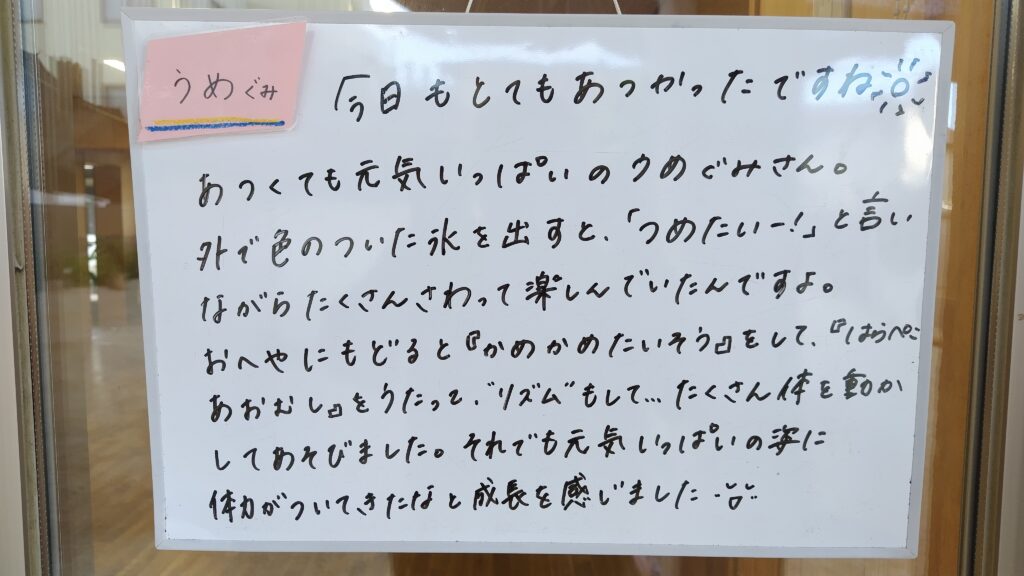 うめぐみ
今日もとてもあつかったですね
あつくても元気いっぱいのうめぐみさん。
外で色のついた氷を出すと、「つめたいー!」と言い
ながらたくさんさわって楽しんでいたんですよ。
おへやにもどると『かめかめたいそう』をして、『はらぺこ
あおむし』をうたって、"リズム"もして...たくさん体を動か
してあそびました。それでも元気いっぱいの姿に
体力がついてきたなと成長を感じました